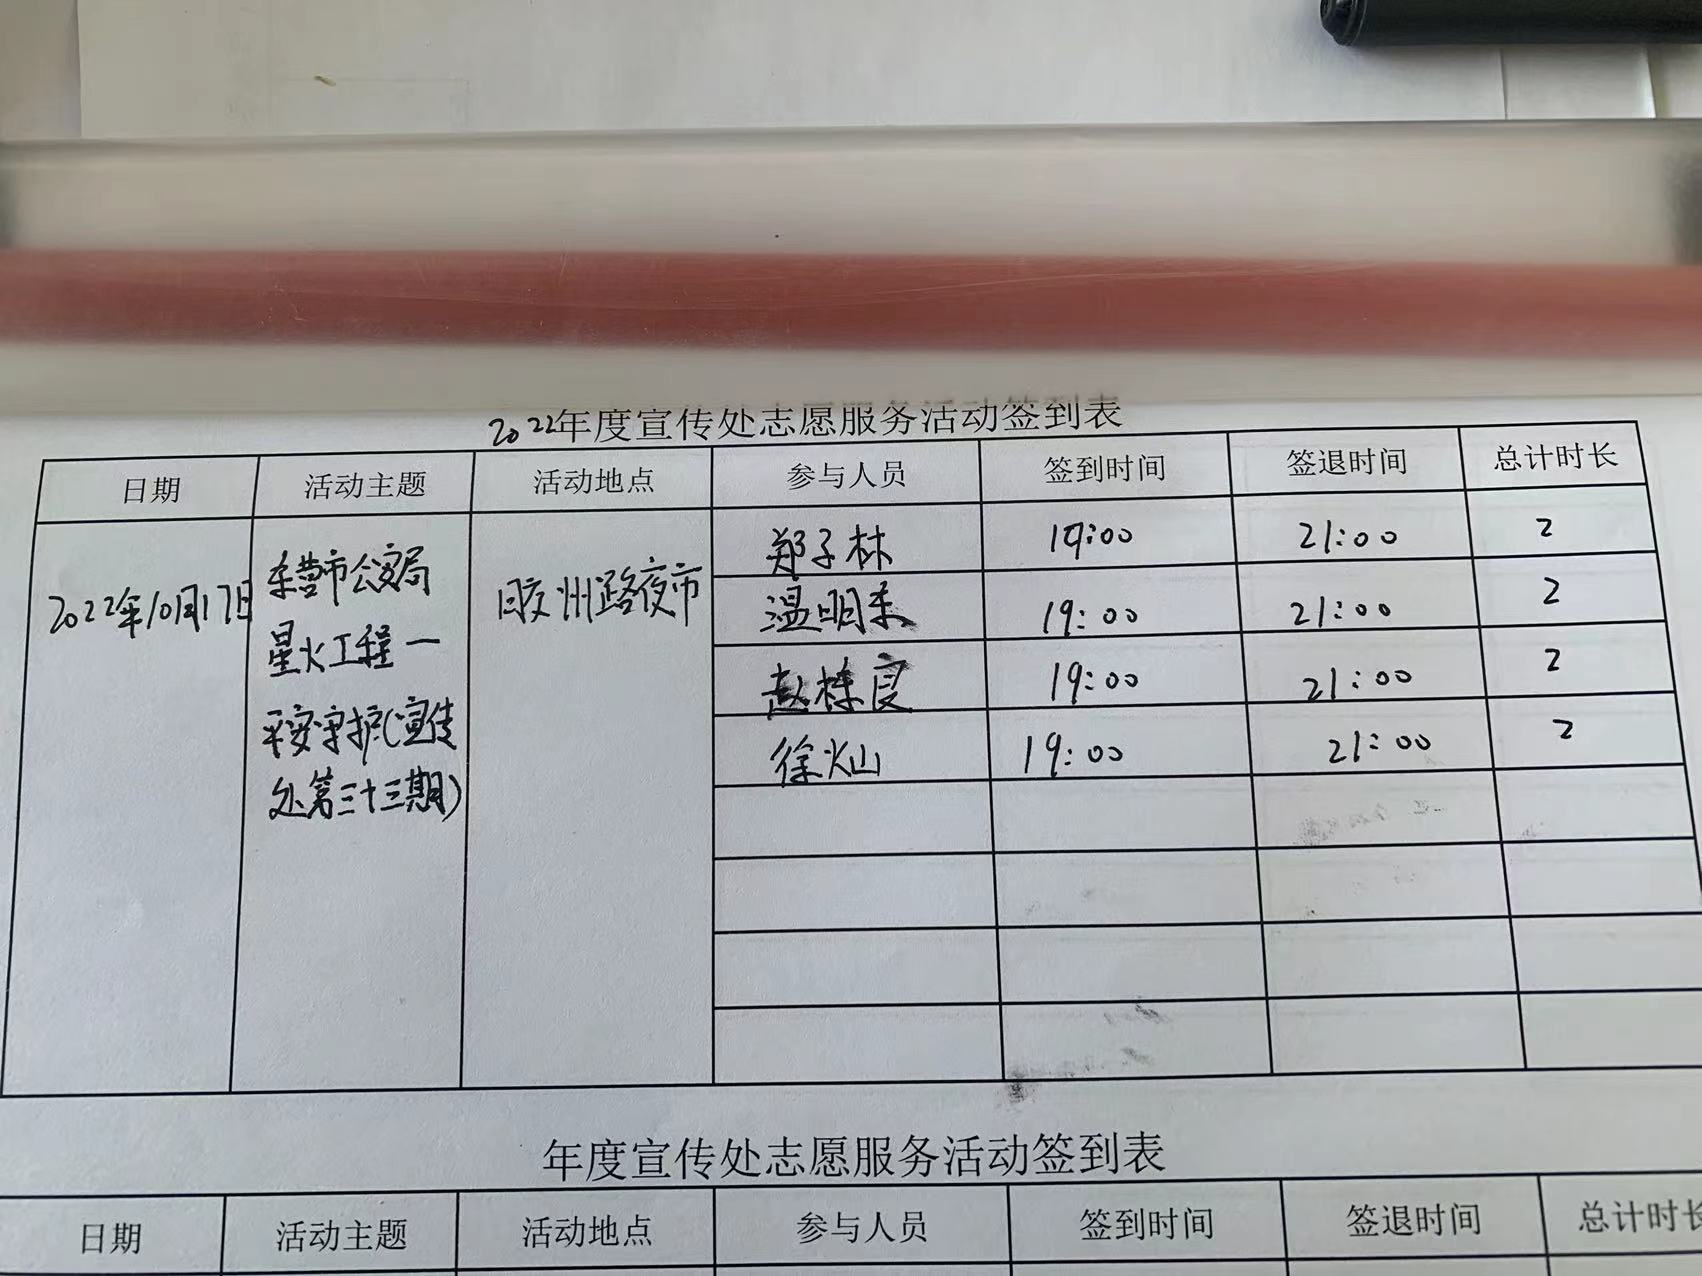 2022年度宣传处志愿服务活动签到表
日期 活动主题 活动地点 参与人员 签到时间 签退时间 总计时长
2022年10月17日
东营市公安局
星火工程一
平安守护(宣传
处第三十三期)
胶州路夜市
郑子林 19:00 21:00 2
温明东 19:00 21:00 2
赵栋良 19:00 21:00 2
徐灿 19:00 21:00 2
年度宣传处志愿服务活动签到表
日期 活动主题 活动地点 参与人员 签到时间 签退时间 总计时长